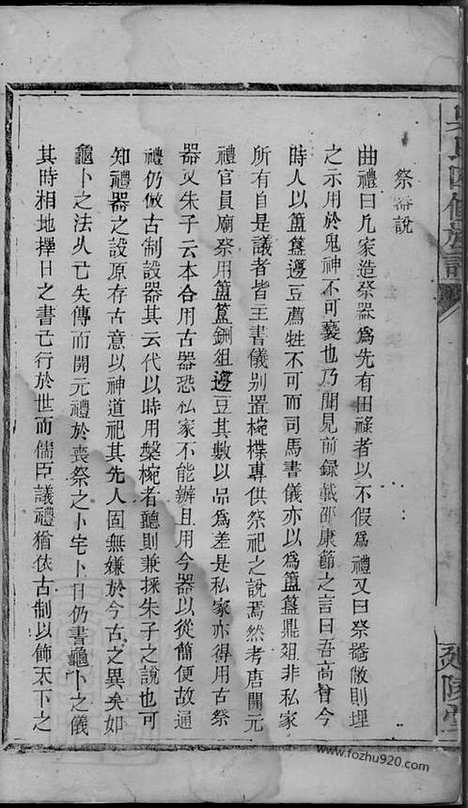 祭器說
曲禮曰凡家造祭器為先有田祿者以不假為禮又曰祭器敝則埋
之示用於鬼神不可褻也乃聞見前錄載邵康節之言曰吾高曾今
時人以簠簋籩豆薦牲不可而司馬書儀亦以為簠簋鼎俎非私家
所有自是議者皆主書儀别置椀楪專供祭祀之說焉然考唐開元
禮官員廟祭用簠簋鉶俎籩豆其數以品為差是私家亦得用古祭
器又朱子云本合用古器恐私家不能辦且用今器以從簡便故通
禮仍倣古制設器其云代以時用槃椀者聽則兼採朱子之說也可
知禮器之設原存古意以神道祀其先人固無嫌於今古之異矣如
龜卜之法久已失傳而開元禮於喪祭之卜宅卜日仍書龜卜之儀
其時相地擇日之書亡行於世而儒臣議禮猶依古制以飾天下之
吳氏四修族譜
延陵堂
www.fozhu920.com